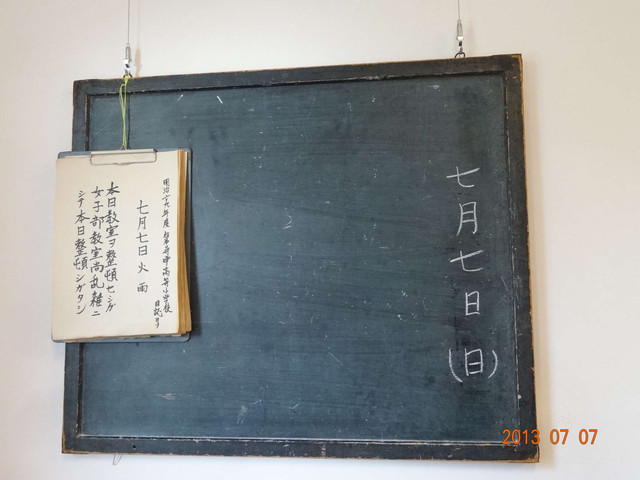 七月七日(日)
明治十九年度
高等小学校
日誌ヨリ
七月七日火雨
本日教室ヲ整頓セシガ
女子部教室尚乱雑ニ
シテ本日整頓シガタシ
2013 07 07